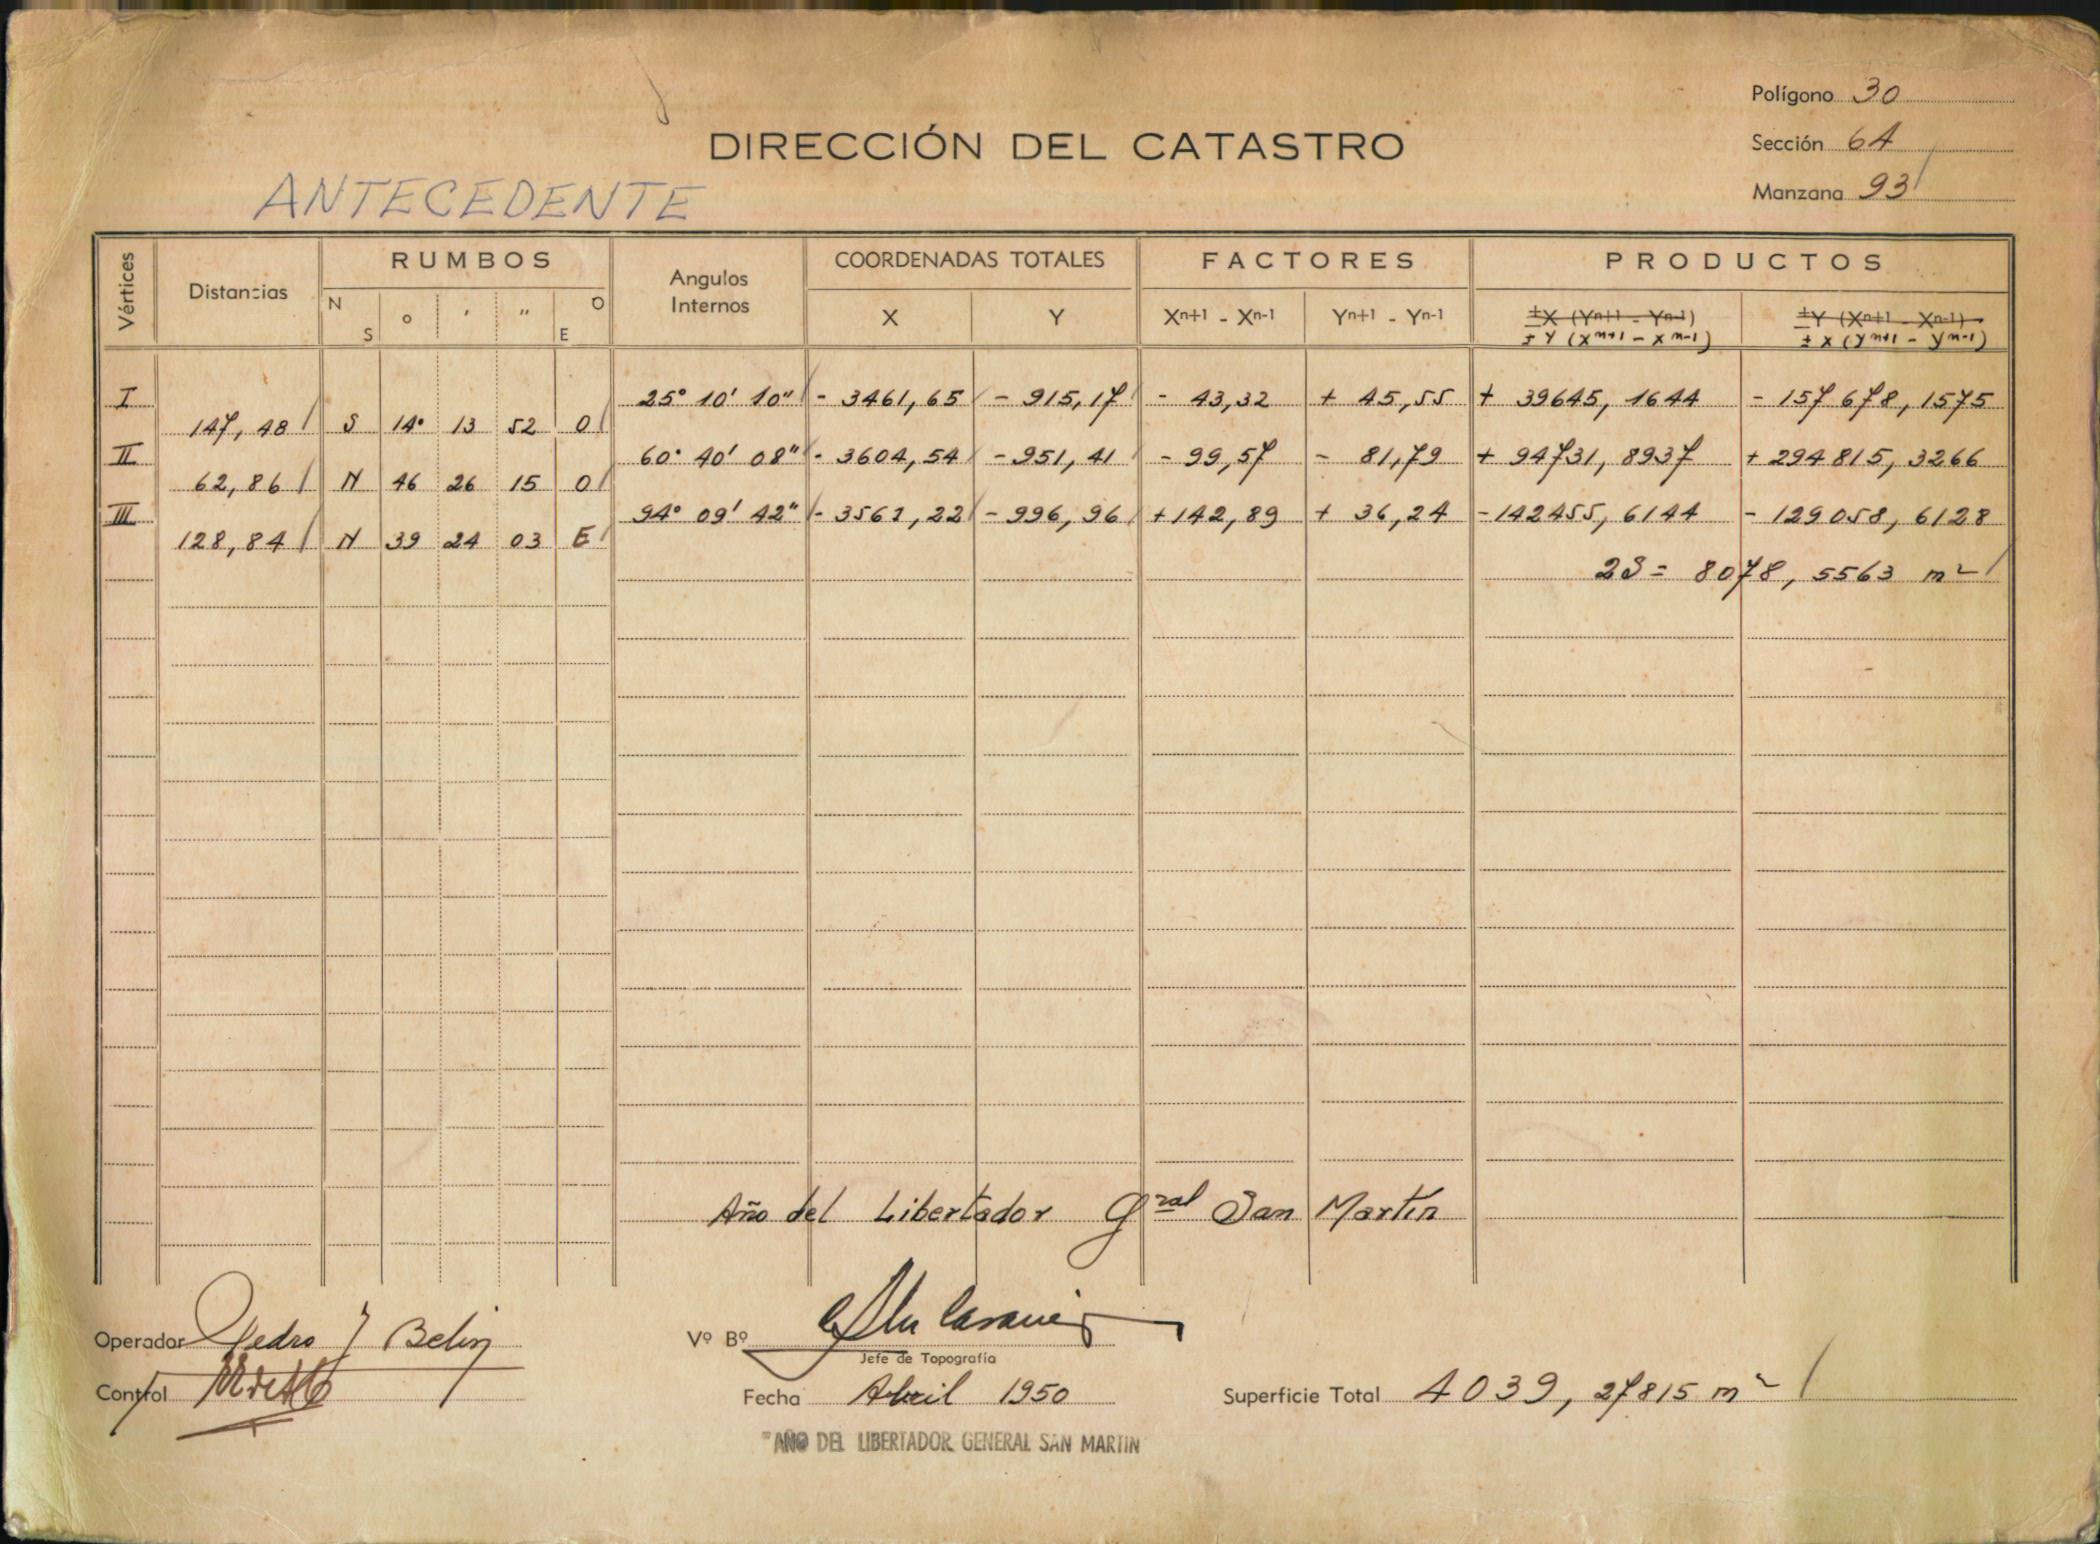 Polígono 30
DIRECCIÓN DEL CATASTRO
Sección 64
ANTECEDENTE
Manzana 93
Vértices Distancias RUMBOS Angulos Internos COORDENADAS TOTALES FACTORES PRODUCTOS
N S o ' " O E X Y Xn+1 - Xn-1 Yn+1 - Yn-1 ±X (Yn+1 - Yn-1) ±Y (Xn+1 - Xn-1)
± Y (X n+1 - X n-1) ± X (Y n+1 - Y n-1)
I 25° 10' 10" - 3461,65 - 915,17 - 43,32 + 45,55 + 39645,1644 - 157678,1575
147,48 S 14° 13 52 O
II 60° 40' 08" - 3604,54 - 951,41 - 99,57 - 81,79 + 94731,8937 + 294815,3266
62,86 N 46 26 15 O
III 94° 09' 42" - 3561,22 - 996,96 + 142,89 + 36,24 - 142455,6144 - 129058,6128
128,84 N 39 24 03 E
2S = 8078,5563 m²
Año del Libertador Gral San Martín
Operador Pedro J Belin
Vº Bº
Jefe de Topografía
Control
Fecha Abril 1950
Superficie Total 4039,27815 m²
"AÑO DEL LIBERTADOR GENERAL SAN MARTIN